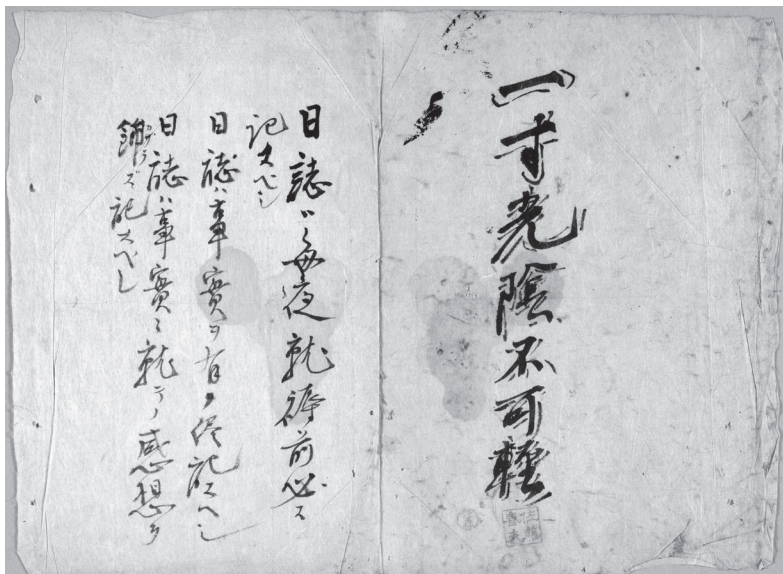 一寸光陰不可輕
日誌ハ毎夜就褥前必ス
記スベシ
日誌ハ事實ヲ有ノ侭記スヘシ
日誌ハ事實ニ就テノ感想ヲ
飾ラズ記スヘシ